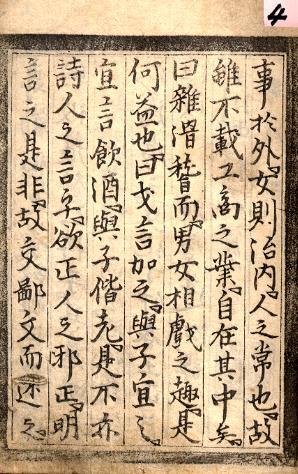 4
事於外女則治内人之常也故
雖不載工商之業自在其中矣
曰雜澘嵆而男女相戲之趣是
何益也曰弋言加之與子宜之
宜言飲酒與子偕老是不亦
詩人之言乎欲正人之邪正明
言之是非故交鄙文而述之